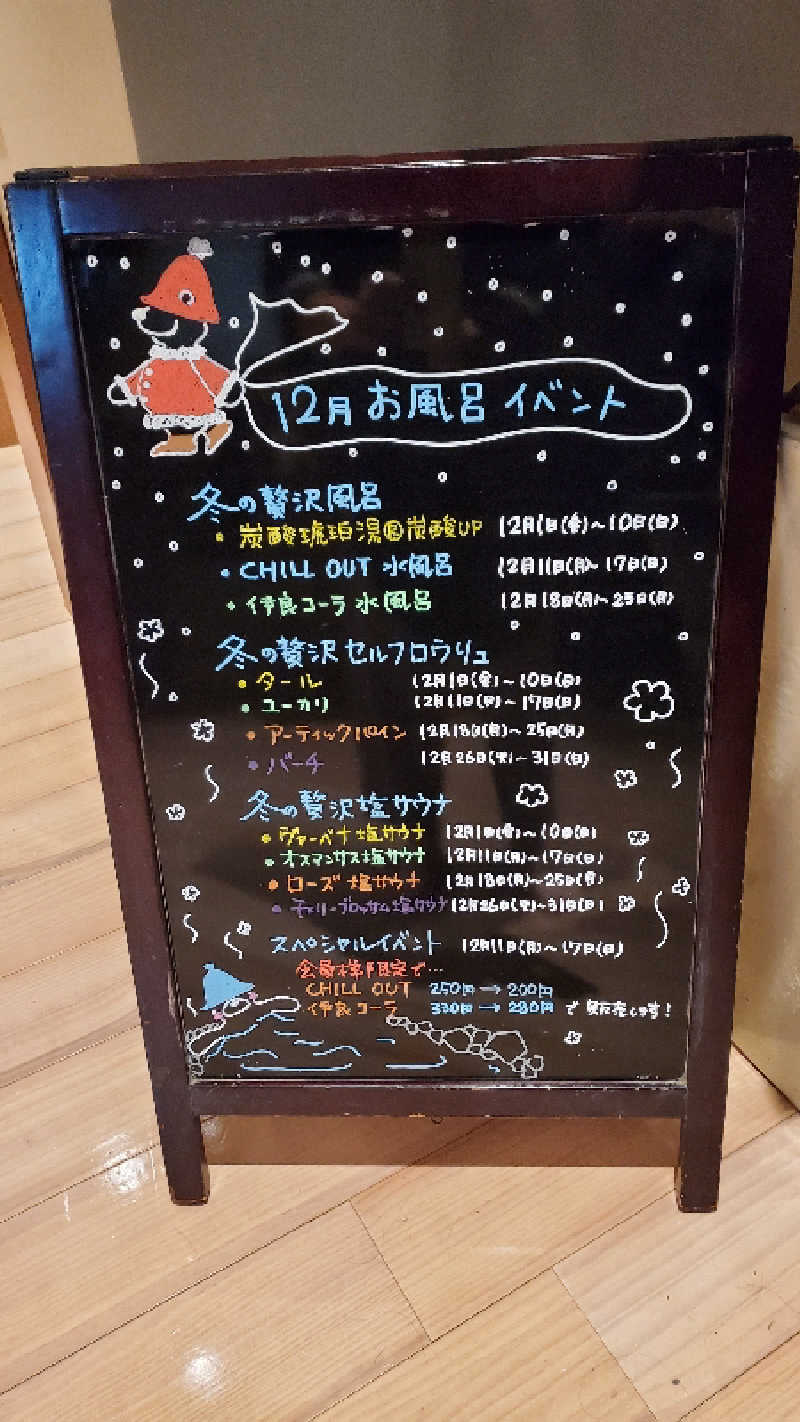 12月 お風呂 イベント
冬の贅沢風呂
・炭酸琥珀湯 炭酸UP 12月1日(金)～10日(日)
・CHILL OUT 水風呂 12月11日(月)～17日(日)
・伊良コーラ 水風呂 12月18日(月)～25日(月)
冬の贅沢セルフロウリュ
・タール 12月1日(金)～10日(日)
・ユーカリ 12月11日(月)～17日(日)
・アーティックパイン 12月18日(月)～25日(月)
・バーチ 12月26日(火)～31日(日)
冬の贅沢塩サウナ
・ヴァーベナ塩サウナ 12月1日(金)～10日(日)
・オスマンサス塩サウナ 12月11日(月)～17日(日)
・ローズ塩サウナ 12月18日(月)～25日(月)
・チェリーブロッサム塩サウナ 12月26日(火)～31日(日)
スペシャルイベント 12月11日(月)～17日(日)
会員様限定で…
CHILL OUT 250円→200円
伊良コーラ 330円→280円 で販売します!